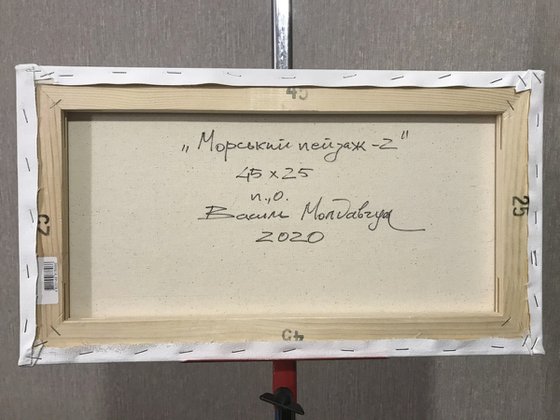 45
„Морський пейзаж-2"
45 x 25
п., о.
Василь Молдавчук
2020
25
25
45